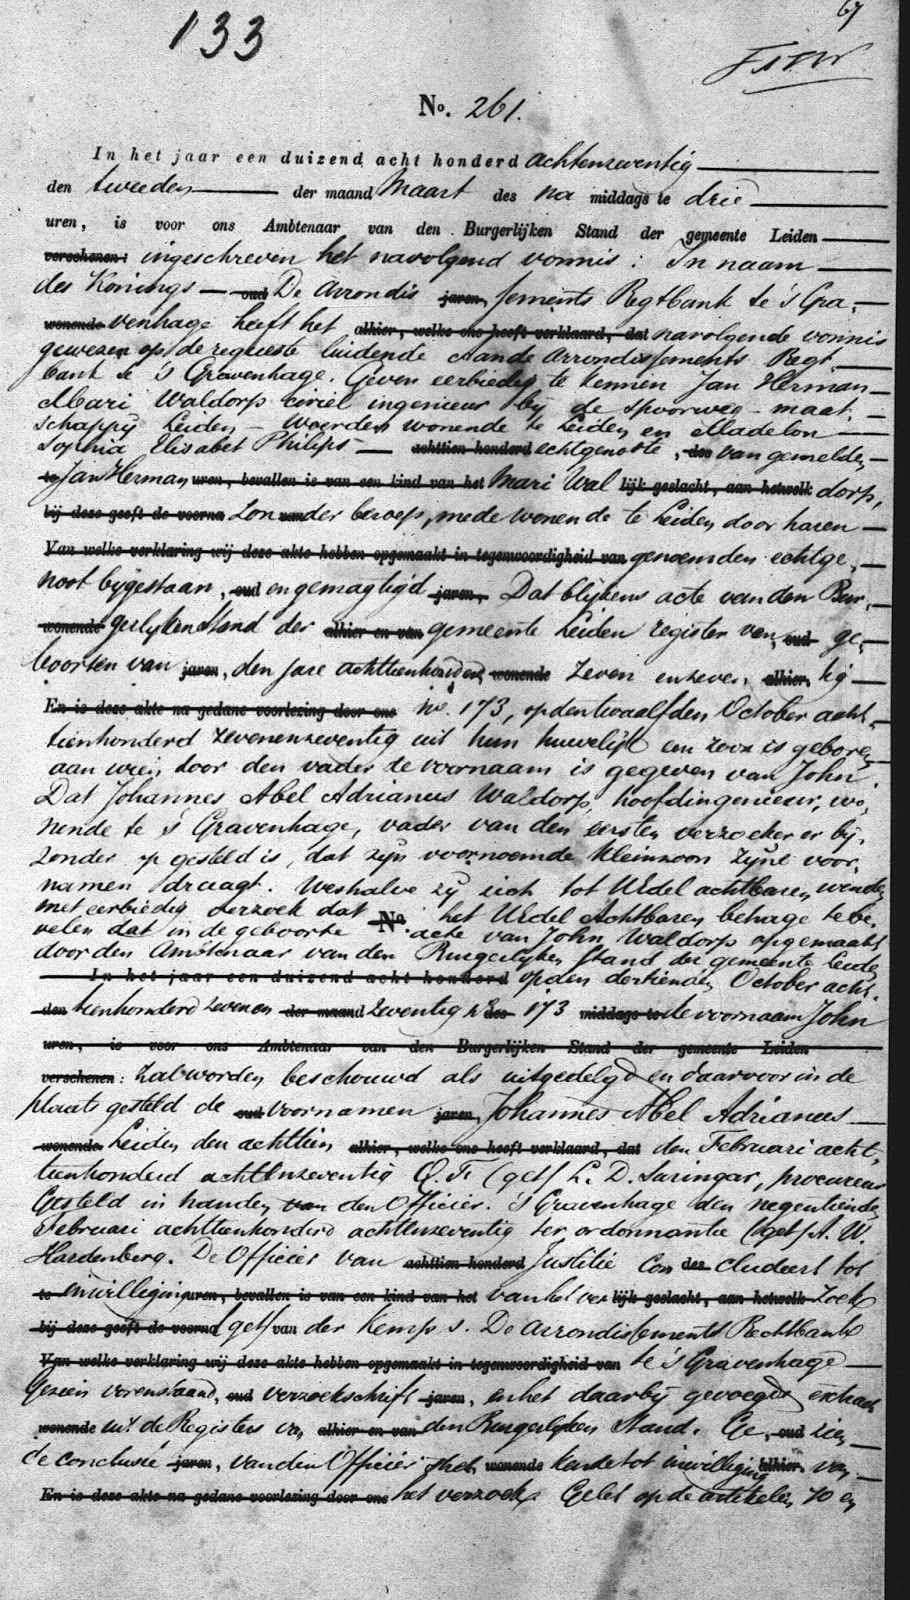 67
133
No. 261.
In het jaar een duizend acht honderd achtenzeventig
den tweeden der maand Maart des na middags te drie
uren, is voor ons Ambtenaar van den Burgerlijken Stand der gemeente Leiden
verschenen: ingeschreven het navolgend vonnis: In naam
des Konings — oud De Arrondis jaren, sements Regtbank te 's Gra
wonende venhage heeft het alhier, welke ons heeft verklaard, dat navolgende vonnis
gewezen op de requeste luidende Aan de Arrondissements Regt
bank te 's Gravenhage. Geven eerbiedig te kennen Jan Herman
Mari Waldorp civiel ingenieur bij de spoorweg-maat
schappij Leiden – Woerden wonende te Leiden en Madelon
Sophia Elisabet Philips — achttien honderd echtgenoote, des van gemelden
te Jan Herman uren, bevallen is van een kind van het Mari Wal lijk geslacht, aan hetwelk dorp,
bij deze geeft de voorna zonder beroep, mede wonende te Leiden door haren
Van welke verklaring wij deze akte hebben opgemaakt in tegenwoordigheid van genoemden echtge
noot bijgestaan, oud en gemagtigd jaren, Dat blijkens acte van den Bur
wonende gerlijken Stand der alhier en van gemeente Leiden register van oud ge
boorten van jaren, den jare achttienhonderd wonende zeven en zeven alhier, tig
En is deze akte na gedane voorlezing door ons No. 173, op den twaalfden October acht
tienhonderd zevenenzeventig uit hun huwelijk een zoon is geboren
aan wien door den vader de voornaam is gegeven van John
Dat Johannes Abel Adrianus Waldorp, hoofdingenieur, wo
nende te 's Gravenhage, vader van den eersten verzoeker er bij
zonder op gesteld is, dat zijn voornoemde kleinzoon zijne voor
namen draagt. Weshalve zij zich tot UEdel achtbaren wenden
met eerbiedig verzoek dat No. het UEdel Achtbaren behage te be
velen dat in de geboorte acte van John Waldorp opgemaakt
door den Ambtenaar van den Burgerlijken Stand der gemeente Leiden
In het jaar een duizend acht honderd op den dertienden October acht
den tienhonderd zeven en der maand zeventig no des 173 middags te de voornaam John
uren, is voor ons Ambtenaar van den Burgerlijken Stand der gemeente Leiden
verschenen: zal worden beschouwd als uitgedelgd en daarvoor in de
plaats gesteld de oud voornamen jaren, Johannes Abel Adrianus
wonende Leiden den achttien alhier, welke ons heeft verklaard, dat den Februari acht
tienhonderd achtenzeventig Q. F. (get) L. D. Saringar, procureur
Gesteld in handen van den Officier. 's Gravenhage den negentienden
Februari achttienhonderd achtenzeventig ter ordonnantie (get) A. W.
Hardenberg. De Officier van achttien honderd Justitie Con des cludeert tot
te inwilliging uren, bevallen is van een kind van het van het ver lijk geslacht, aan hetwelk zoek
bij deze geeft de voorna (get) van der Kemp s. De Arrondissements Rechtbank
Van welke verklaring wij deze akte hebben opgemaakt in tegenwoordigheid van te 's Gravenhage
Gezien vorenstaand, oud verzoekschrift jaren, en het daarbij gevoegd extract
wonende uit de Registers van alhier en van den Burgerlijken Stand. Ge oud zien
de conclusie jaren, van den Officier wonende tot inwilliging alhier, van
En is deze akte na gedane voorlezing door ons het verzoek. Gelet op de artikelen 70 en